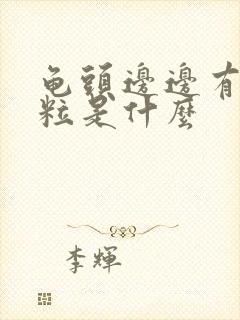 龟頭邊邊有
粒是什麼
李輝